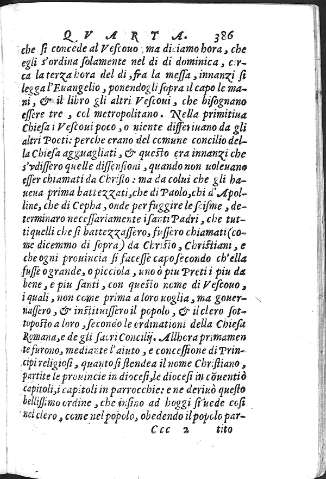 QVARTA. 386
che si concede al Vescouo: ma diciamo hora, che
egli s'ordina solamente nel di di dominica, cer-
ca la terza hora del di, fra la messa, innanzi si
legga l'Euangelio, ponendogli sopra il capo le ma
ni, & il libro gli altri Vescoui, che bisognano
essere tre, col metropolitano. Nella primitina
Chiesa i Vescoui poco, o niente differiuano da gli
altri Preti: perche erano del comune concilio del-
la Chiesa agguagliati, & questo era innanzi che
s'vdissero quelle dissensioni, quando non uoleuano
esser chiamati da Christo: ma da colui che gli ha-
ueua prima battezzati, che di Paolo, chi d'Apol-
line, che di Cepha, onde per fuggire le scisme, de-
terminaro necessariamente i santi Padri, che tut-
ti quelli che si battezzassero, fussero chiamati (co-
me dicemmo di sopra) da Christo, Christiani, e
che ogni prouincia si facesse capo secondo ch'ella
fusse o grande, o picciola, uno ò piu Preti i piu da
bene, e piu santi, con questo nome di Vescouo,
i quali, non come prima a loro uoglia, ma gouer-
nassero, & instituissero il popolo, & il clero sot-
toposto a loro, secondo le ordinationi della Chiesa
Romana, e de gli sacri Concilij. Allhora primamen
te furono, mediante l'aiuto, e concessione di Prin-
cipi religiosi, quanto si stendea il nome Christiano,
partite le prouincie in diocesi, le diocesi in cōuenti ò
capitoli, i capitoli in parrocchie: e ne deriuò questo
bellissimo ordine, che insino ad hoggi si uede cosi
nel clero, come nel popolo, obedendo il popolo par-
Ccc 2 tito